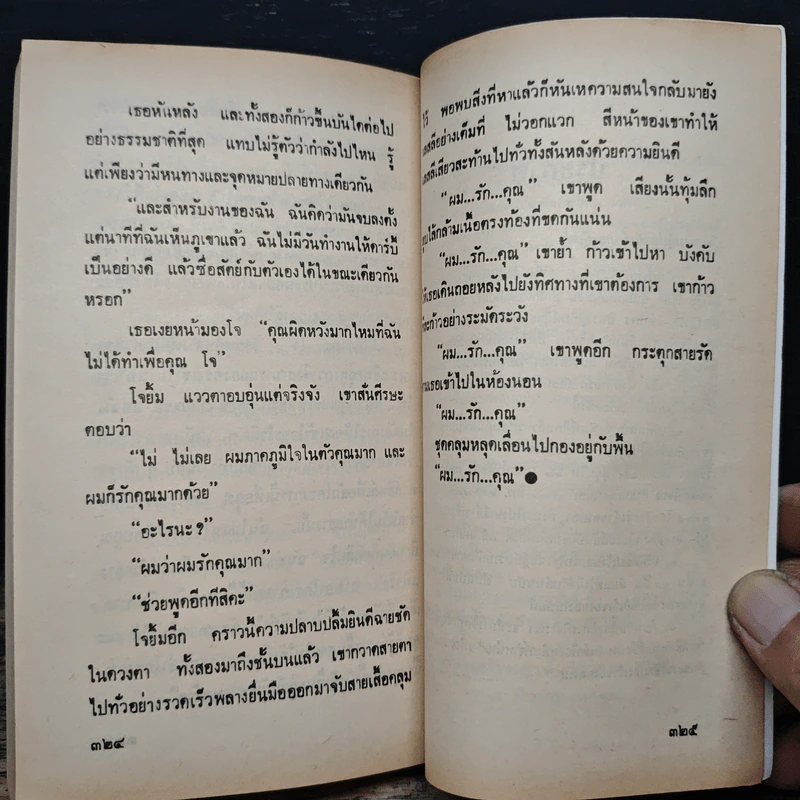 เธอหันหลัง และทั้งสองก็ก้าวขึ้นบันไดต่อไป
อย่างธรรมชาติที่สุด แทบไม่รู้ตัวว่ากำลังไปไหน รู้
แต่เพียงว่ามีหนทางและจุดหมายปลายทางเดียวกัน
“และสำหรับงานของฉัน ฉันคิดว่ามันจบลงตั้ง
แต่นาทีที่ฉันเห็นภูเขาแล้ว ฉันไม่มีวันทำงานให้คาร์บี้
เป็นอย่างดี แล้วซื่อสัตย์กับตัวเองได้ในขณะเดียวกัน
หรอก”
เธอเงยหน้ามองโจ “คุณผิดหวังมากไหมที่ฉัน
ไม่ได้ทำเพื่อคุณ โจ”
โจยิ้ม แววตาอบอุ่นแต่จริงจัง เขาสั่นศีรษะ
ตอบว่า
“ไม่ ไม่เลย ผมภาคภูมิใจในตัวคุณมาก และ
ผมก็รักคุณมากด้วย”
“อะไรนะ?”
“ผมว่าผมรักคุณมาก”
“ช่วยพูดอีกทีสิคะ”
โจยิ้มอีก คราวนี้ความปลาบปลื้มยินดีฉายชัด
ในดวงตา ทั้งสองมาถึงชั้นบนแล้ว เขากวาดสายตา
ไปทั่วอย่างรวดเร็วพลางยื่นมือออกมาจับสายเสื้อคลุม
๓๒๔
ไว้ พอพบสิ่งที่หาแล้วก็หันเหความสนใจกลับมายัง
อย่างเต็มที่ ไม่วอกแวก สีหน้าของเขาทำให้
เสียวสะท้านไปทั่วทั้งสันหลังด้วยความยินดี
“ผม...รัก...คุณ” เขาพูด เสียงนั้นทุ้มลึก
กล้ามเนื้อตรงท้องที่ขดกันแน่น
“ผม...รัก...คุณ” เขาย้ำ ก้าวเข้าไปหา บังคับ
ให้เธอเดินถอยหลังไปยังทิศทางที่เขาต้องการ เขาก้าว
ก้าวอย่างระมัดระวัง
“ผม...รัก...คุณ” เขาพูดอีก กระตุกสายรัด
เธอเข้าไปในห้องนอน
“ผม...รัก...คุณ”
ชุดคลุมหลุดเลื่อนไปกองอยู่กับพื้น
“ผม...รัก...คุณ”●
๓๒๕